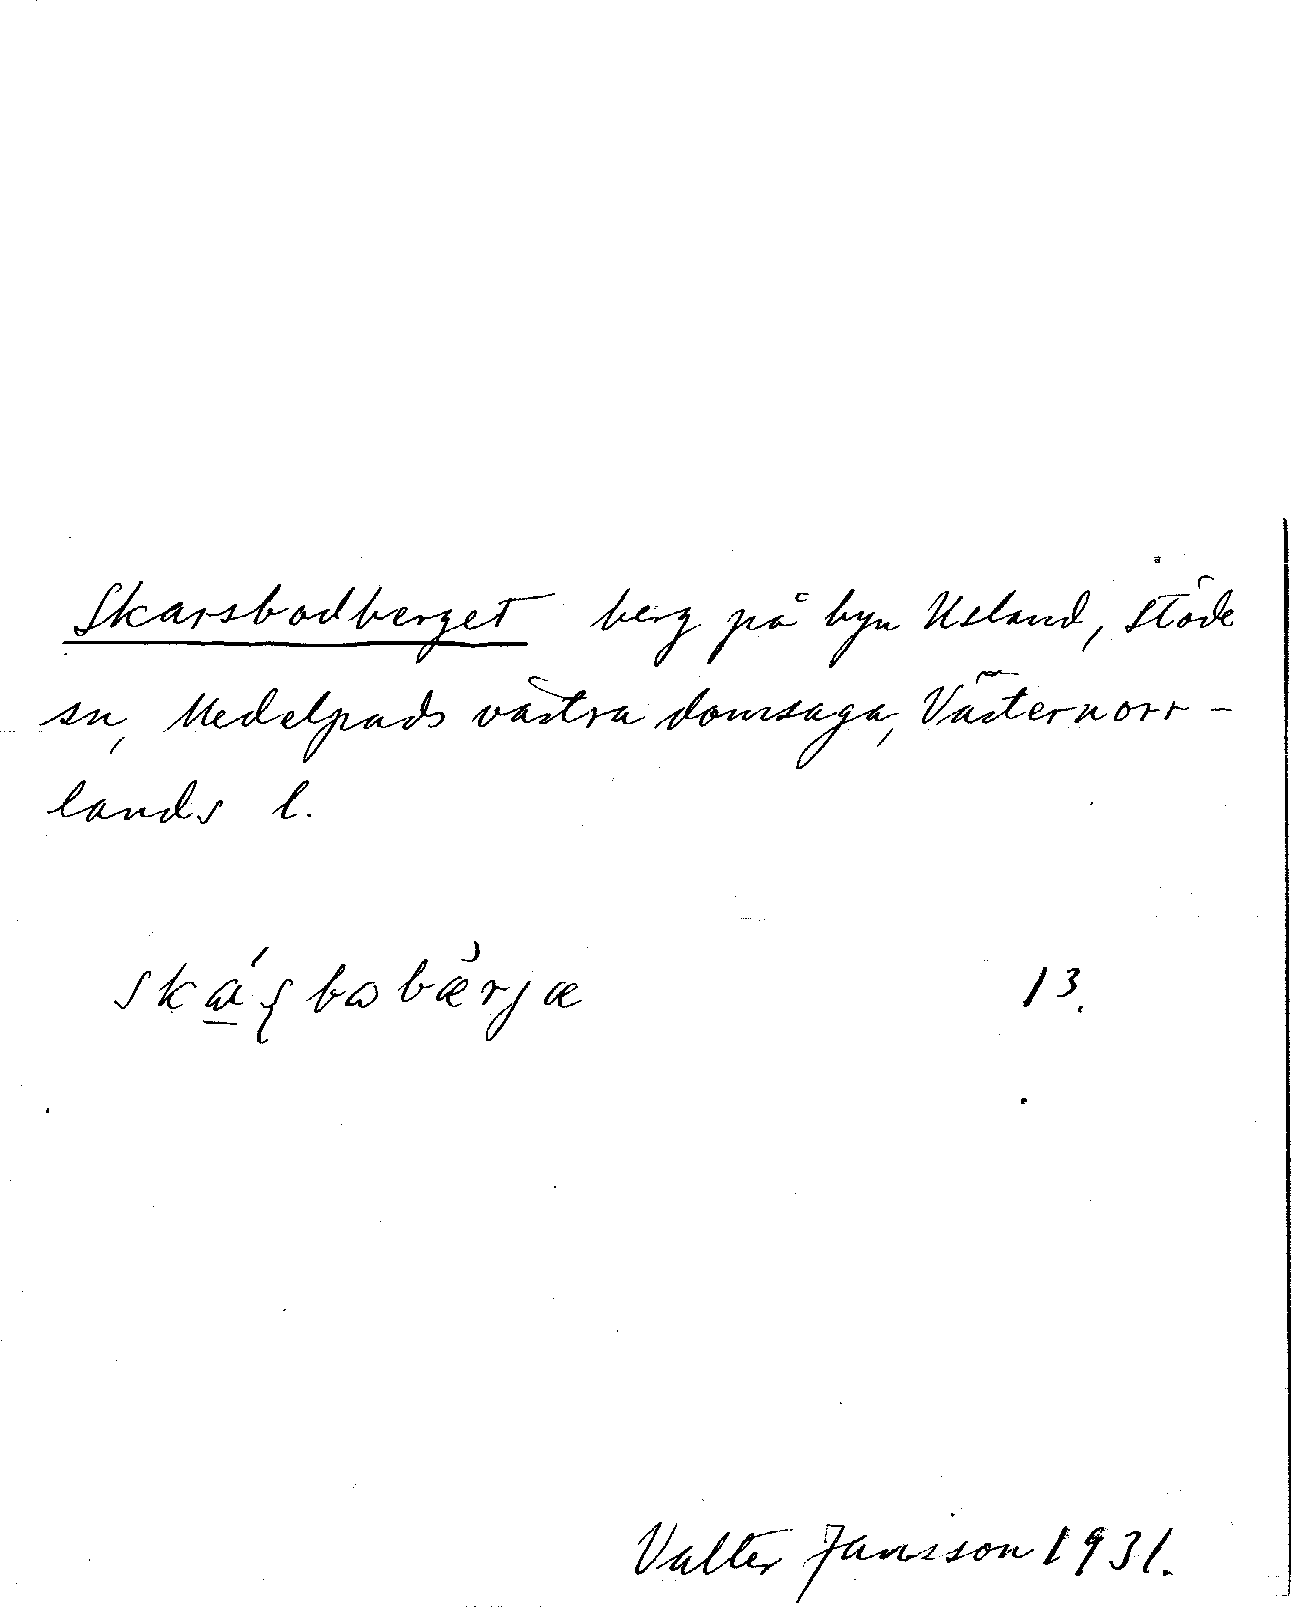 Skarsbodberget berg på byn Usland, Stöde
sn, Medelpads västra domsaga, Västernorr-
lands l.
ská̱ʂbωbæ̀rjæ 13.
Valter Jansson 1931.